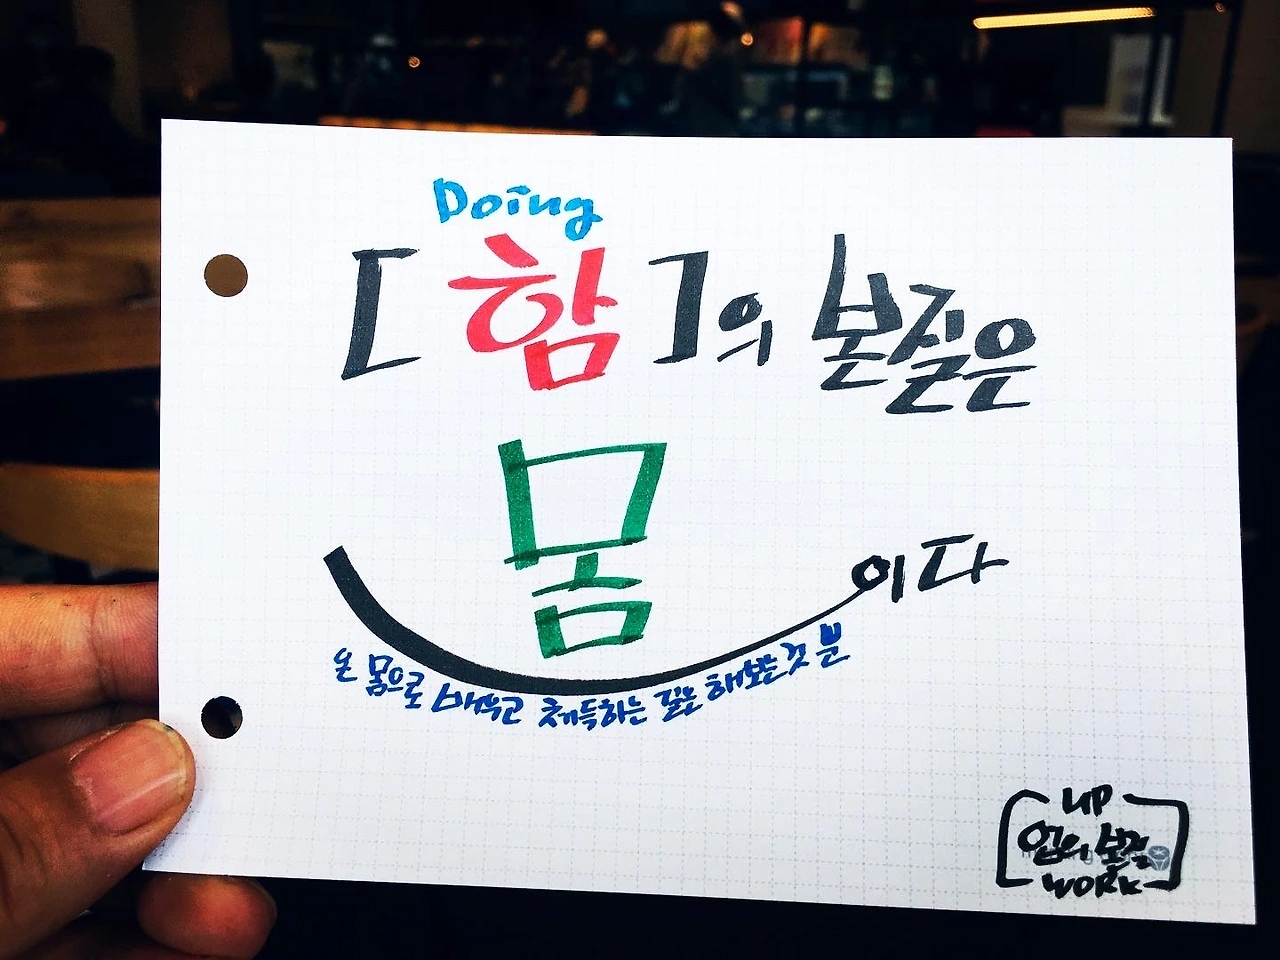 Doing
[함]의 본질은
몸
이다
온 몸으로 배우고 체득하는 길은 해보는 것 뿐
UP
업의 본질
WORK